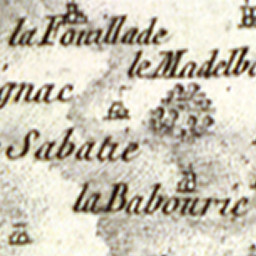 la Fouillade
le Madelbo
gnac
Sabatié
la Babourie